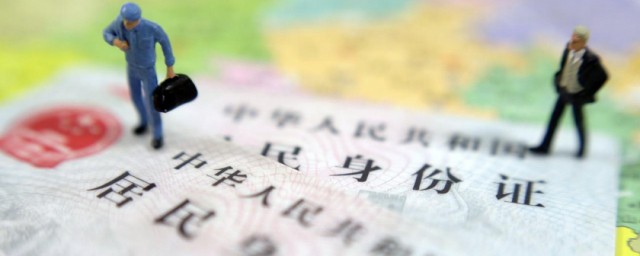 中华人民共和国
民身份证
中华人民共和
居民身